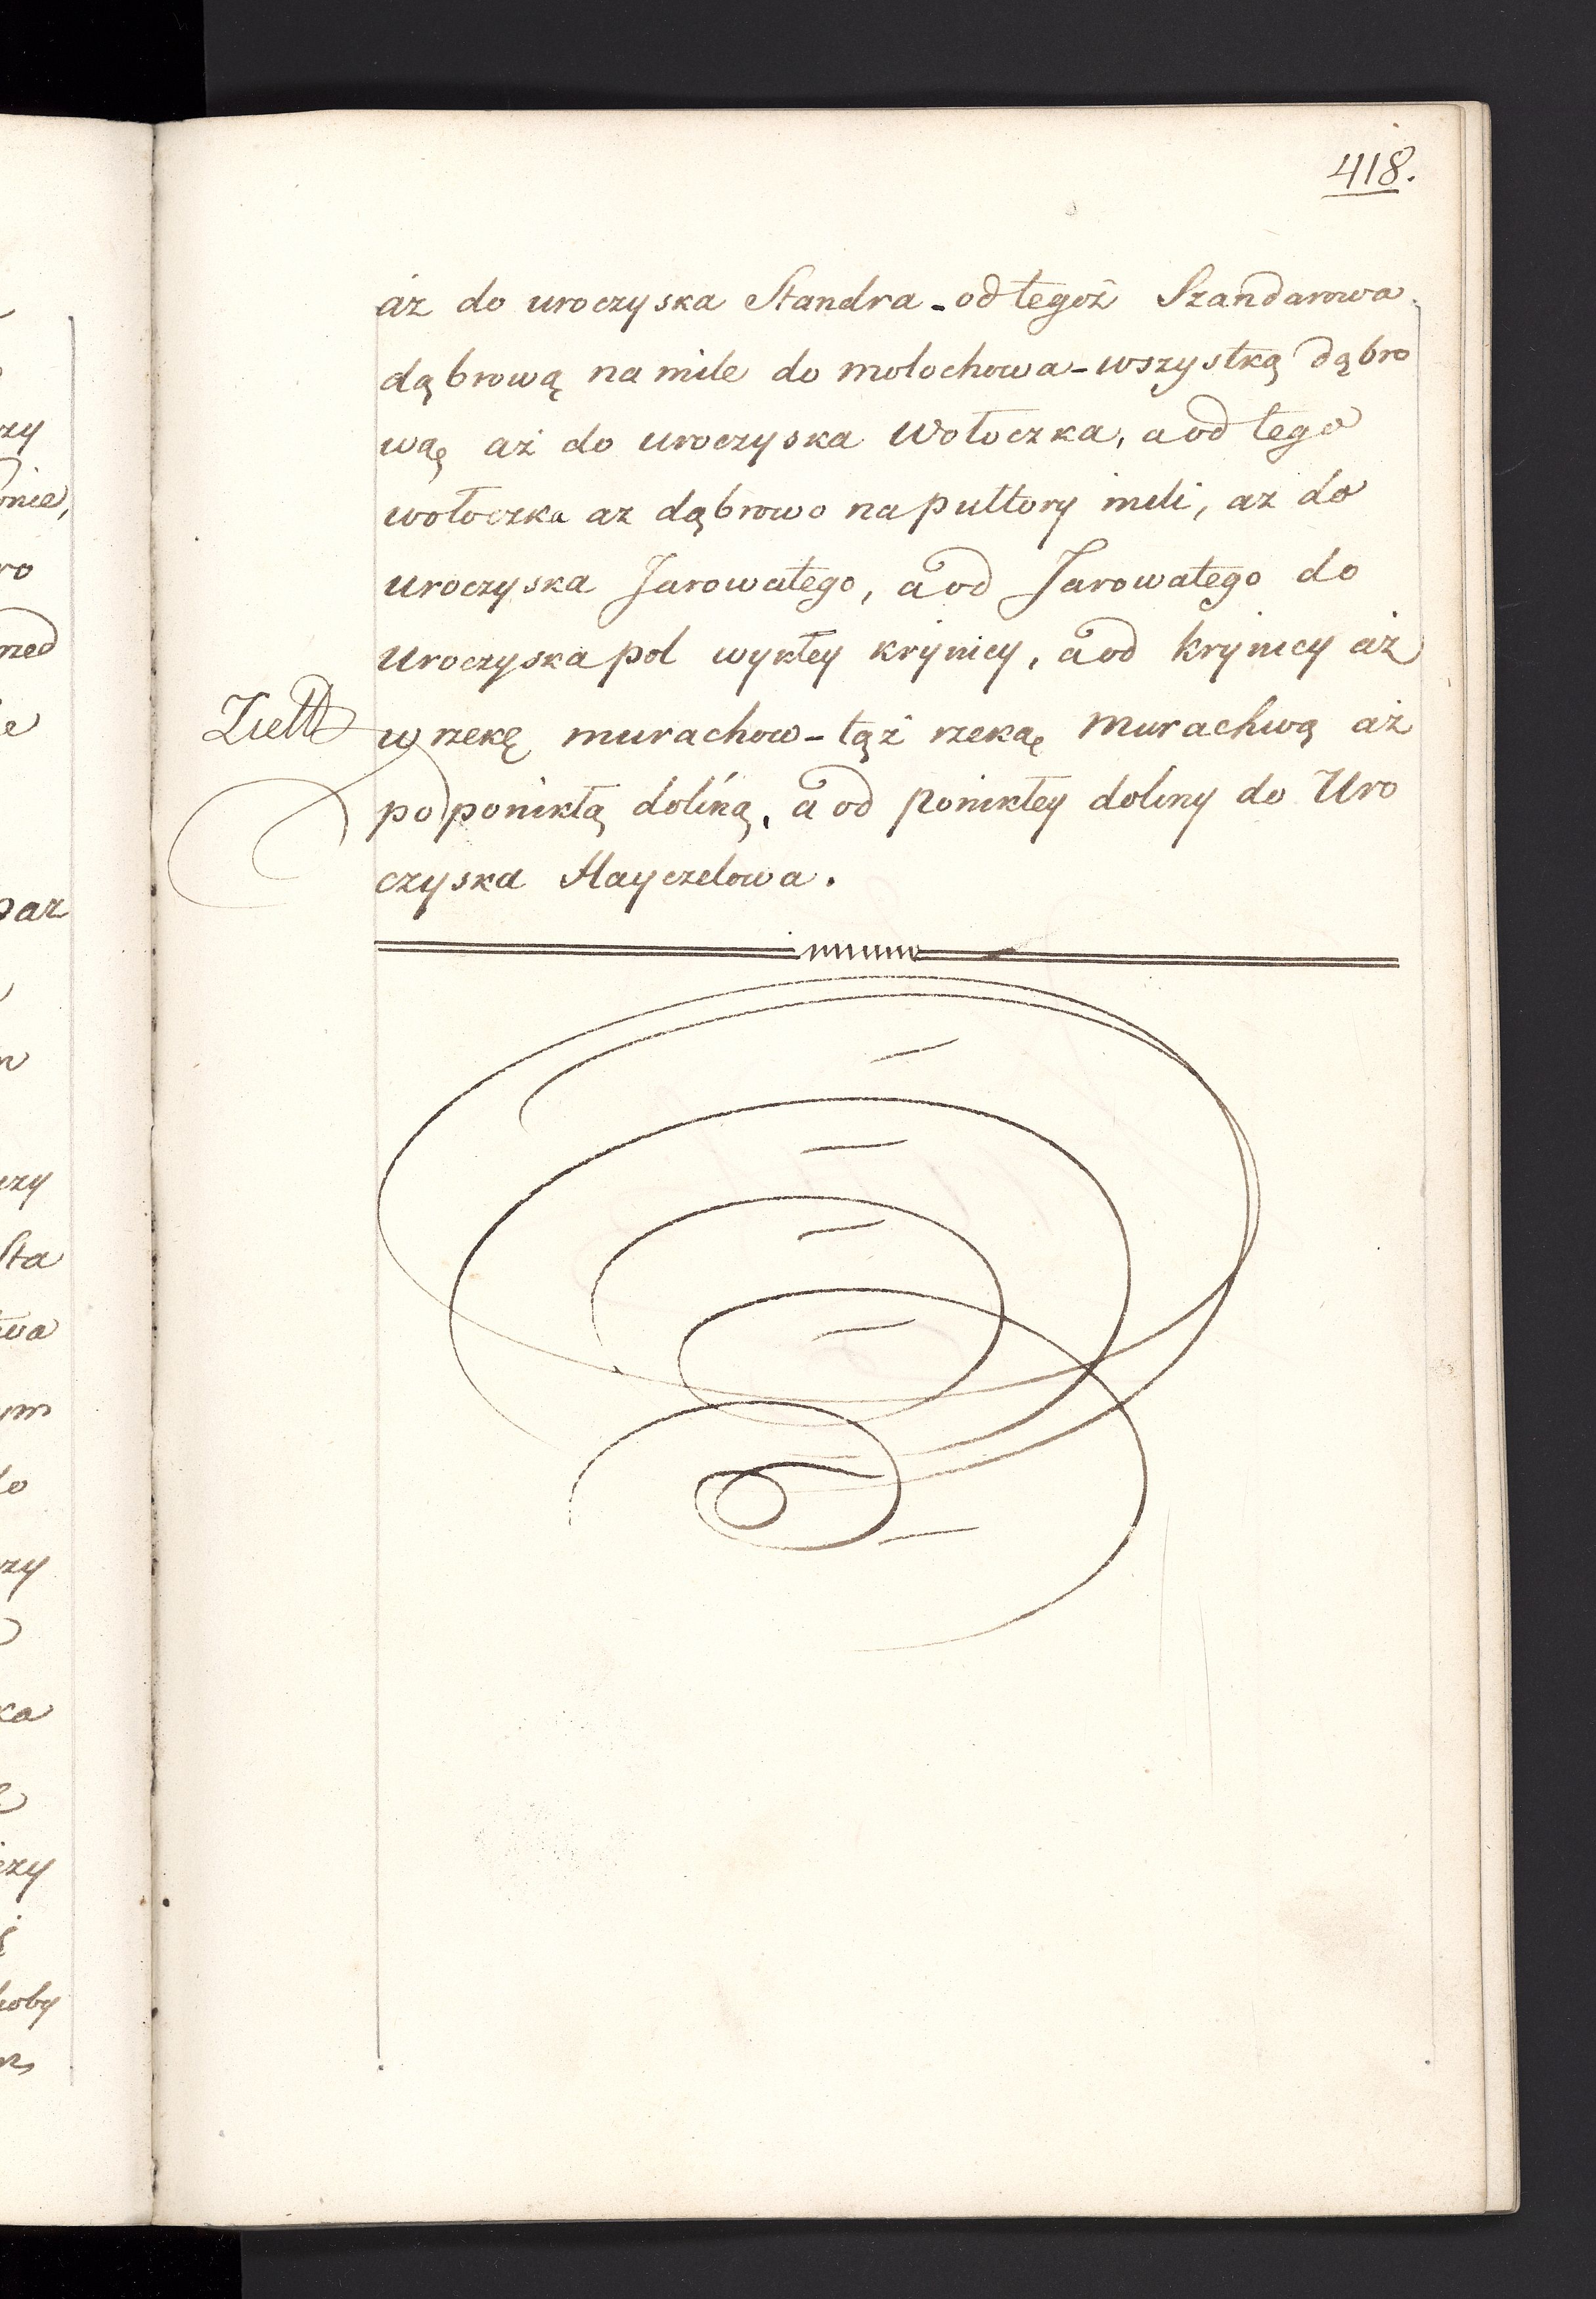 418.
aż do uroczyska Standra - od tegoż Szandarowa
dąbrową na mile do molochowa - wszystką dąbro
wąę aż do uroczyska Wołoczka, a od tego
wołoczka az dąbrowo na pułtory mili, az do
uroczyska Jarowatego, a od Jarowatego do
Uroczyska pol wykłey krynicy, a od krynicy aż
w rzekę murachow - tąż rzekaę Murachwą aż
po ponikłą doliną, a od ponikłey doliny do Uro
czyska Hayczelowa.